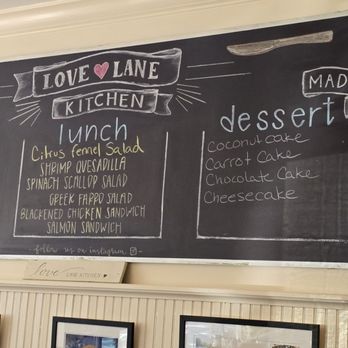 LOVE ♥ LANE
KITCHEN
lunch
Citrus fennel Salad
SHRIMP QUESADILLA
SPINACH SCALLOP SALAD
GREEK FARRO SALAD
BLACKENED CHICKEN SANDWICH
SALMON SANDWICH
- follow us on instagram -
MAD
dessert
Coconut cake
Carrot Cake
Chocolate Cake
Cheesecake
love LANE KITCHEN ♥